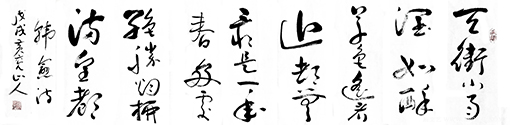 天街小雨
润如酥
草色遥看
近却无
最是一年
春好处
绝胜烟柳
满皇都
韩愈诗
戊戌亥元山人